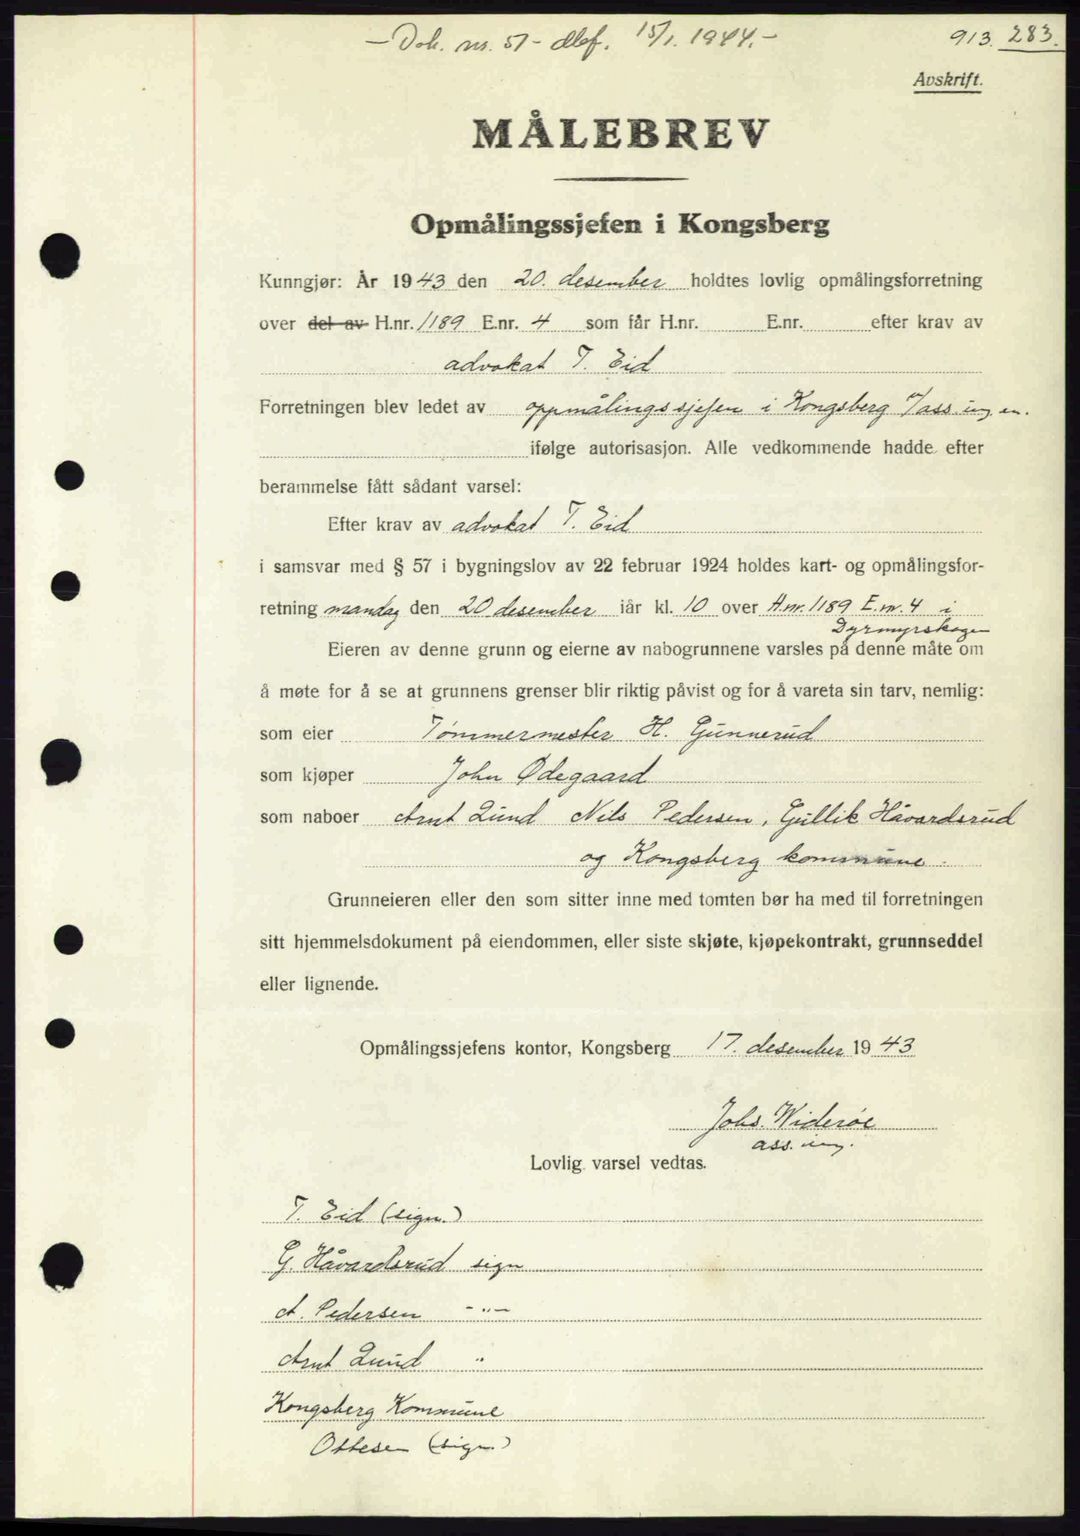 - Dok. nr. 51 - dbf. 15/1. 1944. -
913. 283.
Avskrift.
MÅLEBREV
Opmålingssjefen i Kongsberg
Kunngjør: År 1943 den 20. desember holdtes lovlig opmålingsforretning
over del av H.nr. 1189 E.nr. 4 som får H.nr. E.nr. efter krav av
advokat T. Eid
Forretningen blev ledet av oppmålingssjefen i Kongsberg v/ass. ing. en.
ifølge autorisasjon. Alle vedkommende hadde efter
berammelse fått sådant varsel:
Efter krav av advokat T. Eid
i samsvar med § 57 i bygningslov av 22 februar 1924 holdes kart- og opmålingsfor-
retning mandag den 20 desember iår kl. 10 over H.nr. 1189 E.nr. 4 i
Dyrmyrskogen
Eieren av denne grunn og eierne av nabogrunnene varsles på denne måte om
å møte for å se at grunnens grenser blir riktig påvist og for å vareta sin tarv, nemlig:
som eier Tømmermester H. Gunnerud
som kjøper John Ødegaard
som naboer Arnt Lund Nils Pedersen, Gullik Håvardsrud
og Kongsberg kommune.
Grunneieren eller den som sitter inne med tomten bør ha med til forretningen
sitt hjemmelsdokument på eiendommen, eller siste skjøte, kjøpekontrakt, grunnseddel
eller lignende.
Opmålingssjefens kontor, Kongsberg 17. desember 1943
Johs. Widerøe
ass. ing.
Lovlig varsel vedtas.
T. Eid (sign.)
G. Håvardsrud sign
A. Pedersen -"-
Arnt Lund "
Kongsberg Kommune
Ottesen (sign.)